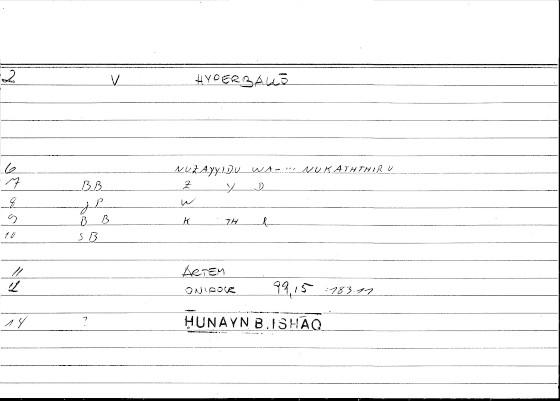 2 V HYPERBALLŌ
6 NUZAYYIDU WA-... NUKATHTHIRU
7 BB Z Y D
8 JP W
9 B B K TH R
10 SB
11 ARTEM
12 ONIROCR 99,15 183 11
14 ? HUNAYN B. ISHĀQ